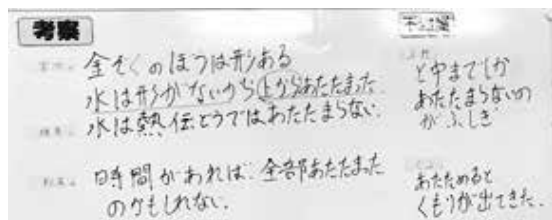 考察
金ぞくのほうは形ある
水は形がないから上からあたたまった
水は熱伝どうではあたたまらない。
時間があれば、全部あたたまった
のかもしれない。
と中までしか
あたたまらないの
がふしぎ
あたためると
くもりが出てきた。